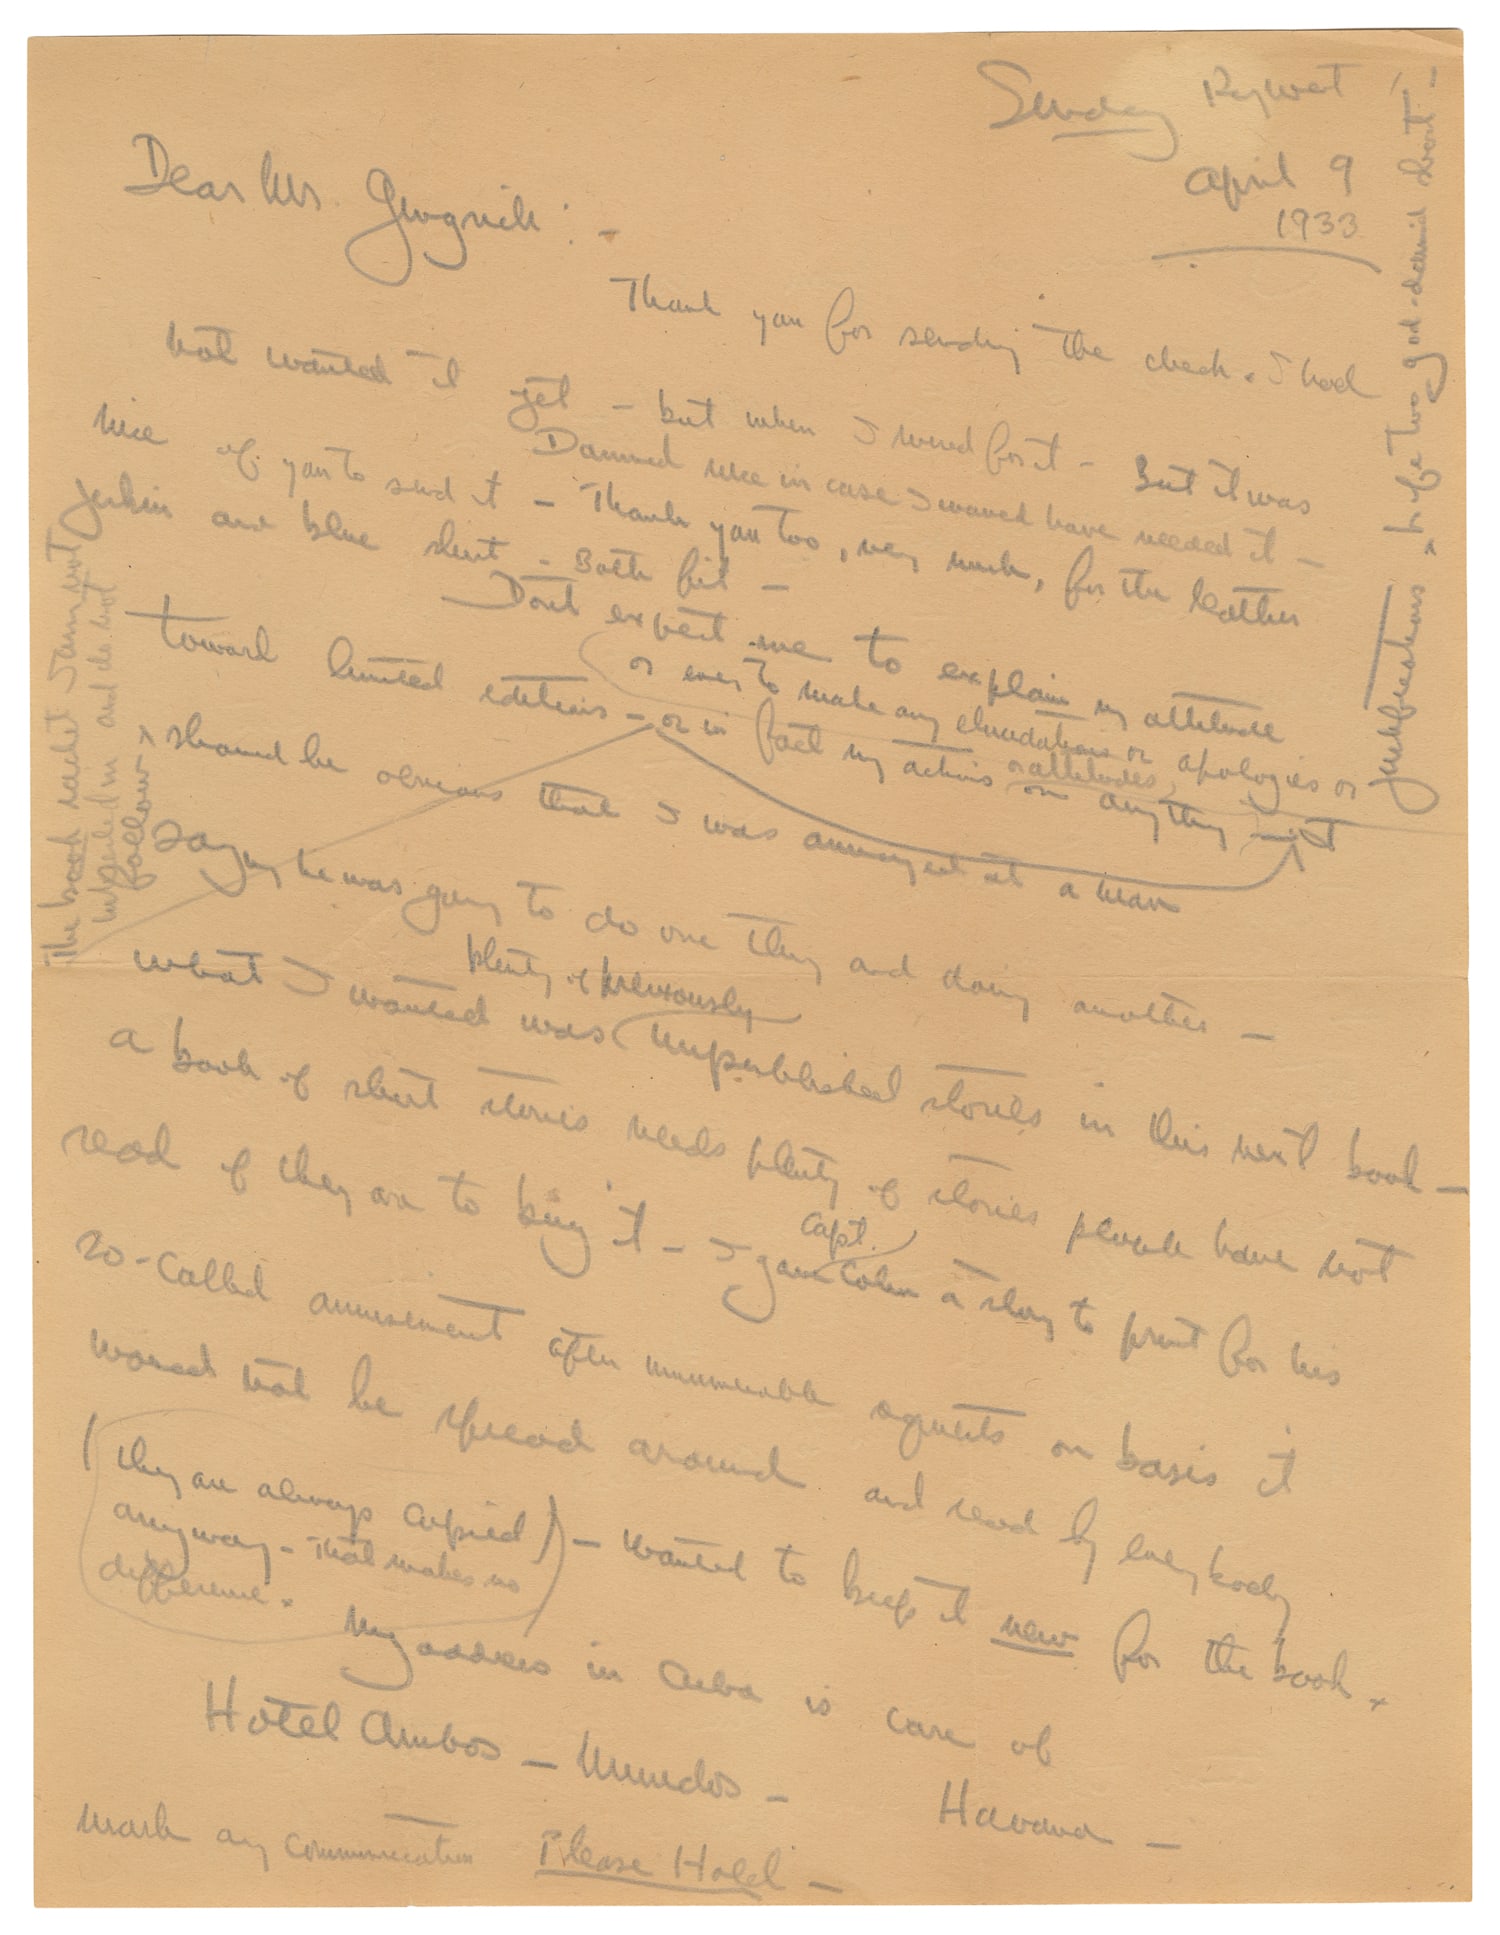 Sunday Key West
April 9
1933
Dear Mr. Gingrich : -
Thank you for sending the check. I had
not wanted it yet - but when I wired for it - But it was
Damned nice in case I would have needed it -
nice of you to send it - Thank you too, very much, for the leather
jerkin and blue shirt - Both fit -
Dont expect me to explain my attitude
or ever to make any elucidations or apologies or
justifications - life too god-damned short -
toward limited editions - or in fact my actions or attitudes on anything - It
The book racket I am not
interested in and do not
follow
should be obvious that I was annoyed at a man
saying he was going to do one thing and doing another -
what I wanted was plenty of previously unpublished stories in this next book -
a book of short stories needs plenty of stories people have not
read if they are to buy it - I gave Capt. Cohn a story to print for his
so-called amusement after innumerable requests on basis it
would not be spread around and read by everybody
(they are always copied
anyway - That makes no
difference.) - Wanted to keep it new for the book.
My address in Cuba is care of
Hotel Ambos - Mundos - Havana -
Mark any communication Please Hold -